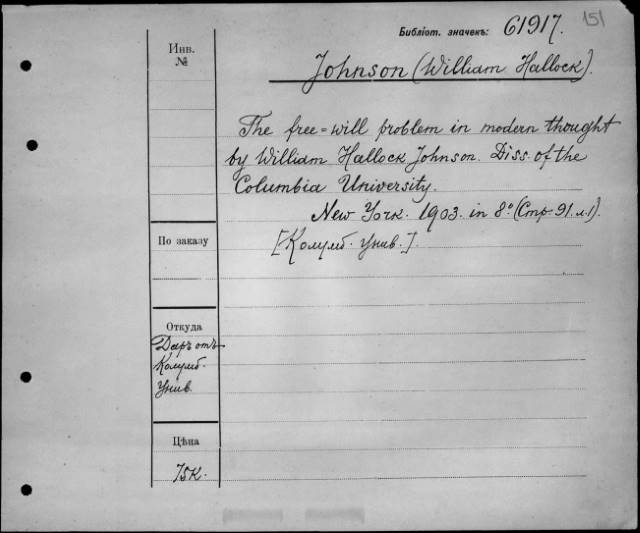 Библіот. значекъ: 61917.
151
Инв.
№
Johnson (William Hallock).
The free=will problem in modern thought
by William Hallock Johnson. Diss. of the
Columbia University.
New York. 1903. in 8° (Стр. 91. л. 1).
[Колумб. Унив.]
По заказу
Откуда
Даръ отъ
Колумб.
Унив
Цѣна
75к.